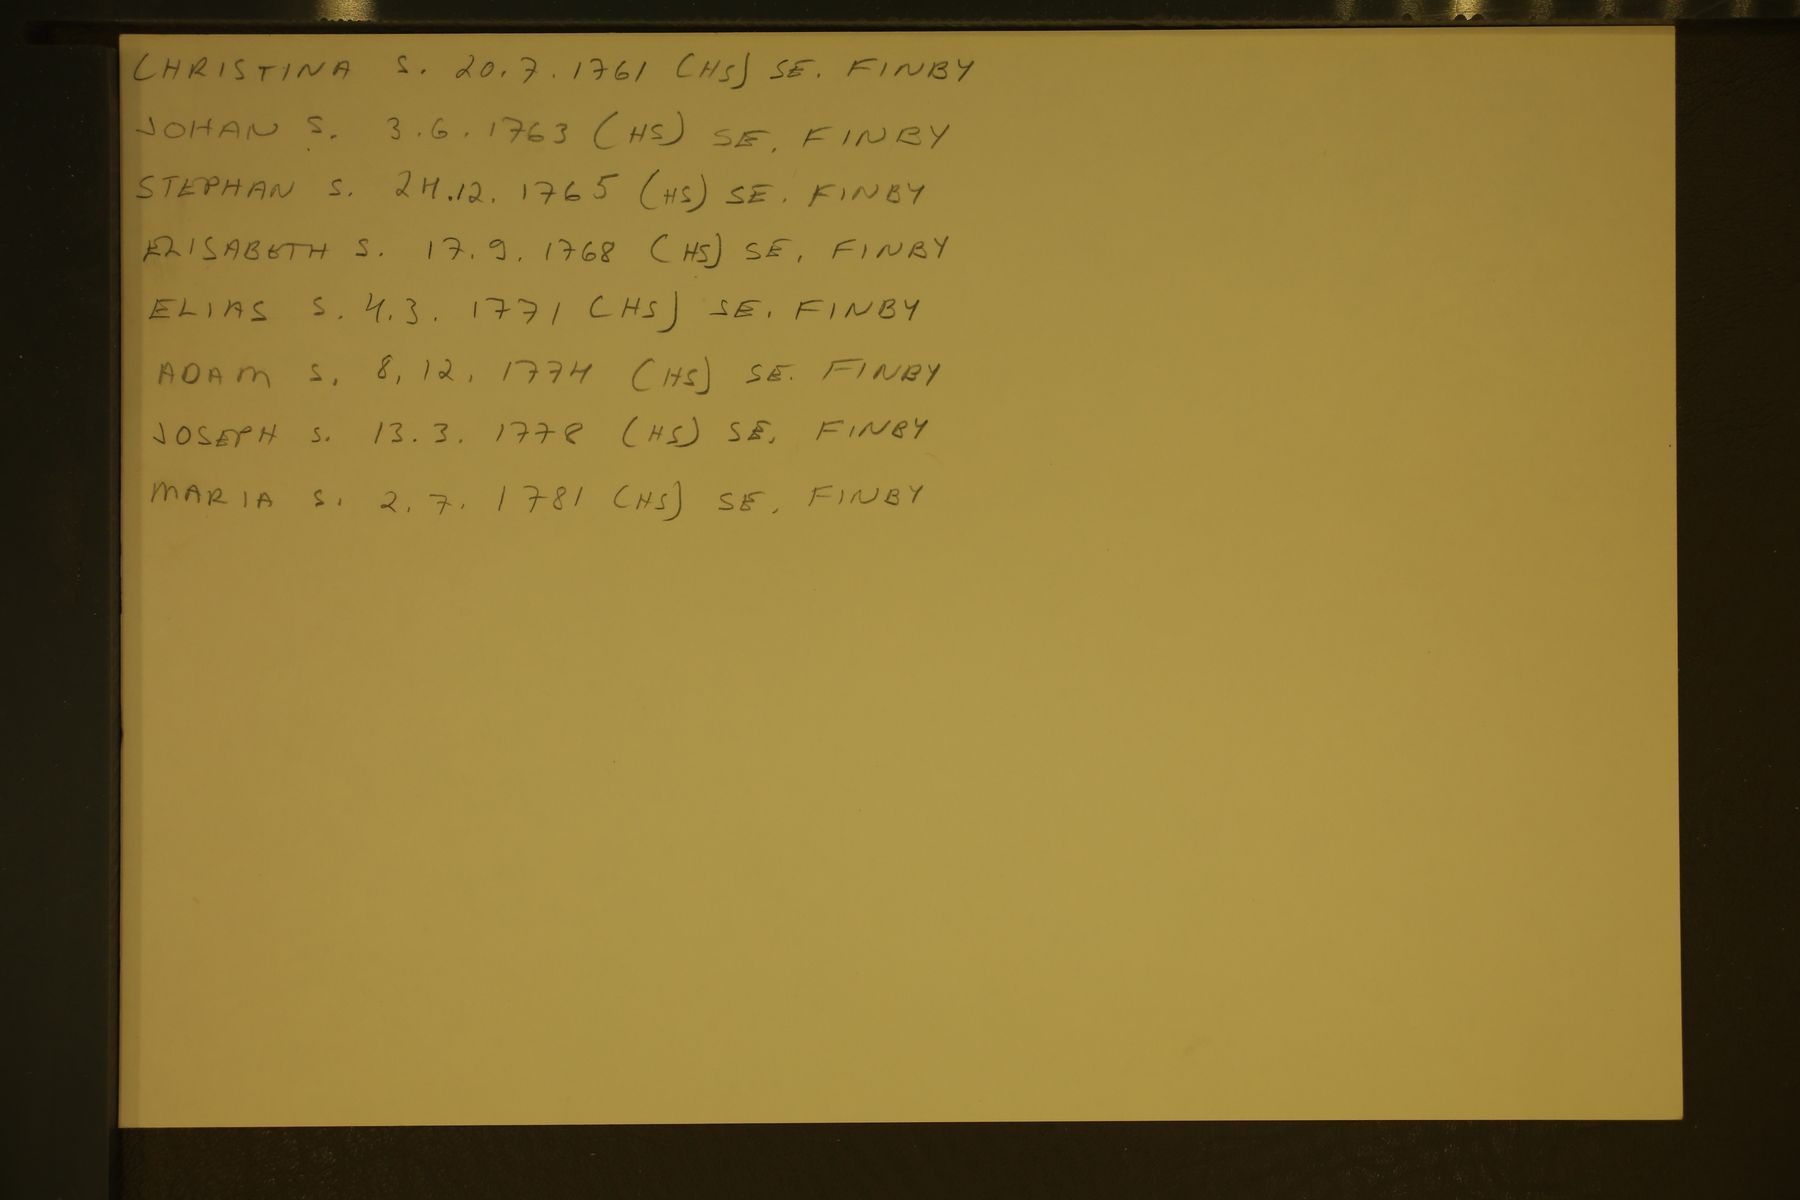 CHRISTINA S. 20.7.1761 (HS) SE. FINBY
JOHAN S. 3.6.1763 (HS) SE. FINBY
STEPHAN S. 24.12.1765 (HS) SE. FINBY
ELISABETH S. 17.9.1768 (HS) SE. FINBY
ELIAS S. 4.3.1771 (HS) SE. FINBY
ADAM S. 8.12.1774 (HS) SE. FINBY
JOSEPH S. 13.3.1778 (HS) SE. FINBY
MARIA S. 2.7.1781 (HS) SE. FINBY